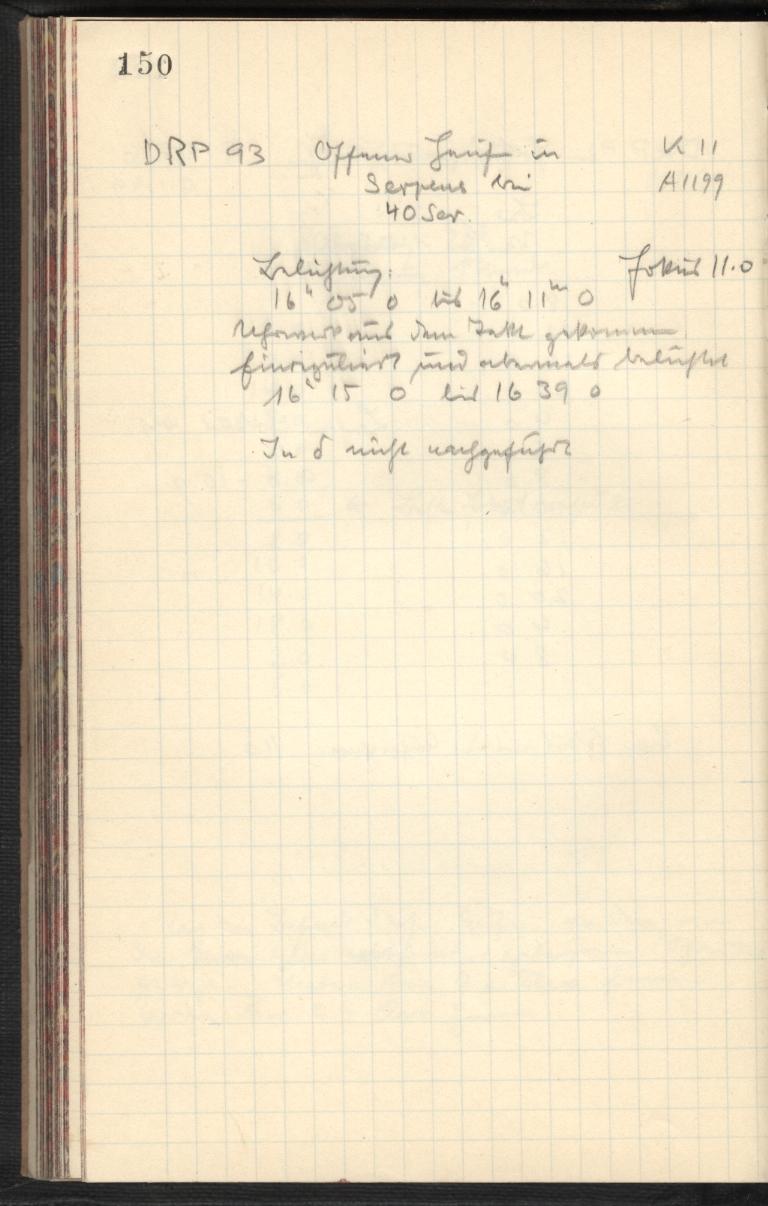 150
DRP 93 Offener Haufen in K 11
Serpens bei A 1199
40 Ser.
Belichtung: Fokus 11.0
16ʰ 05 0 bis 16ʰ 11ᵐ 0
Uhrwerk aus dem Takt gekommen
Einreguliert und abermals belichtet
16ʰ 15 0 bis 16 39 0
In δ nicht nachgeführt